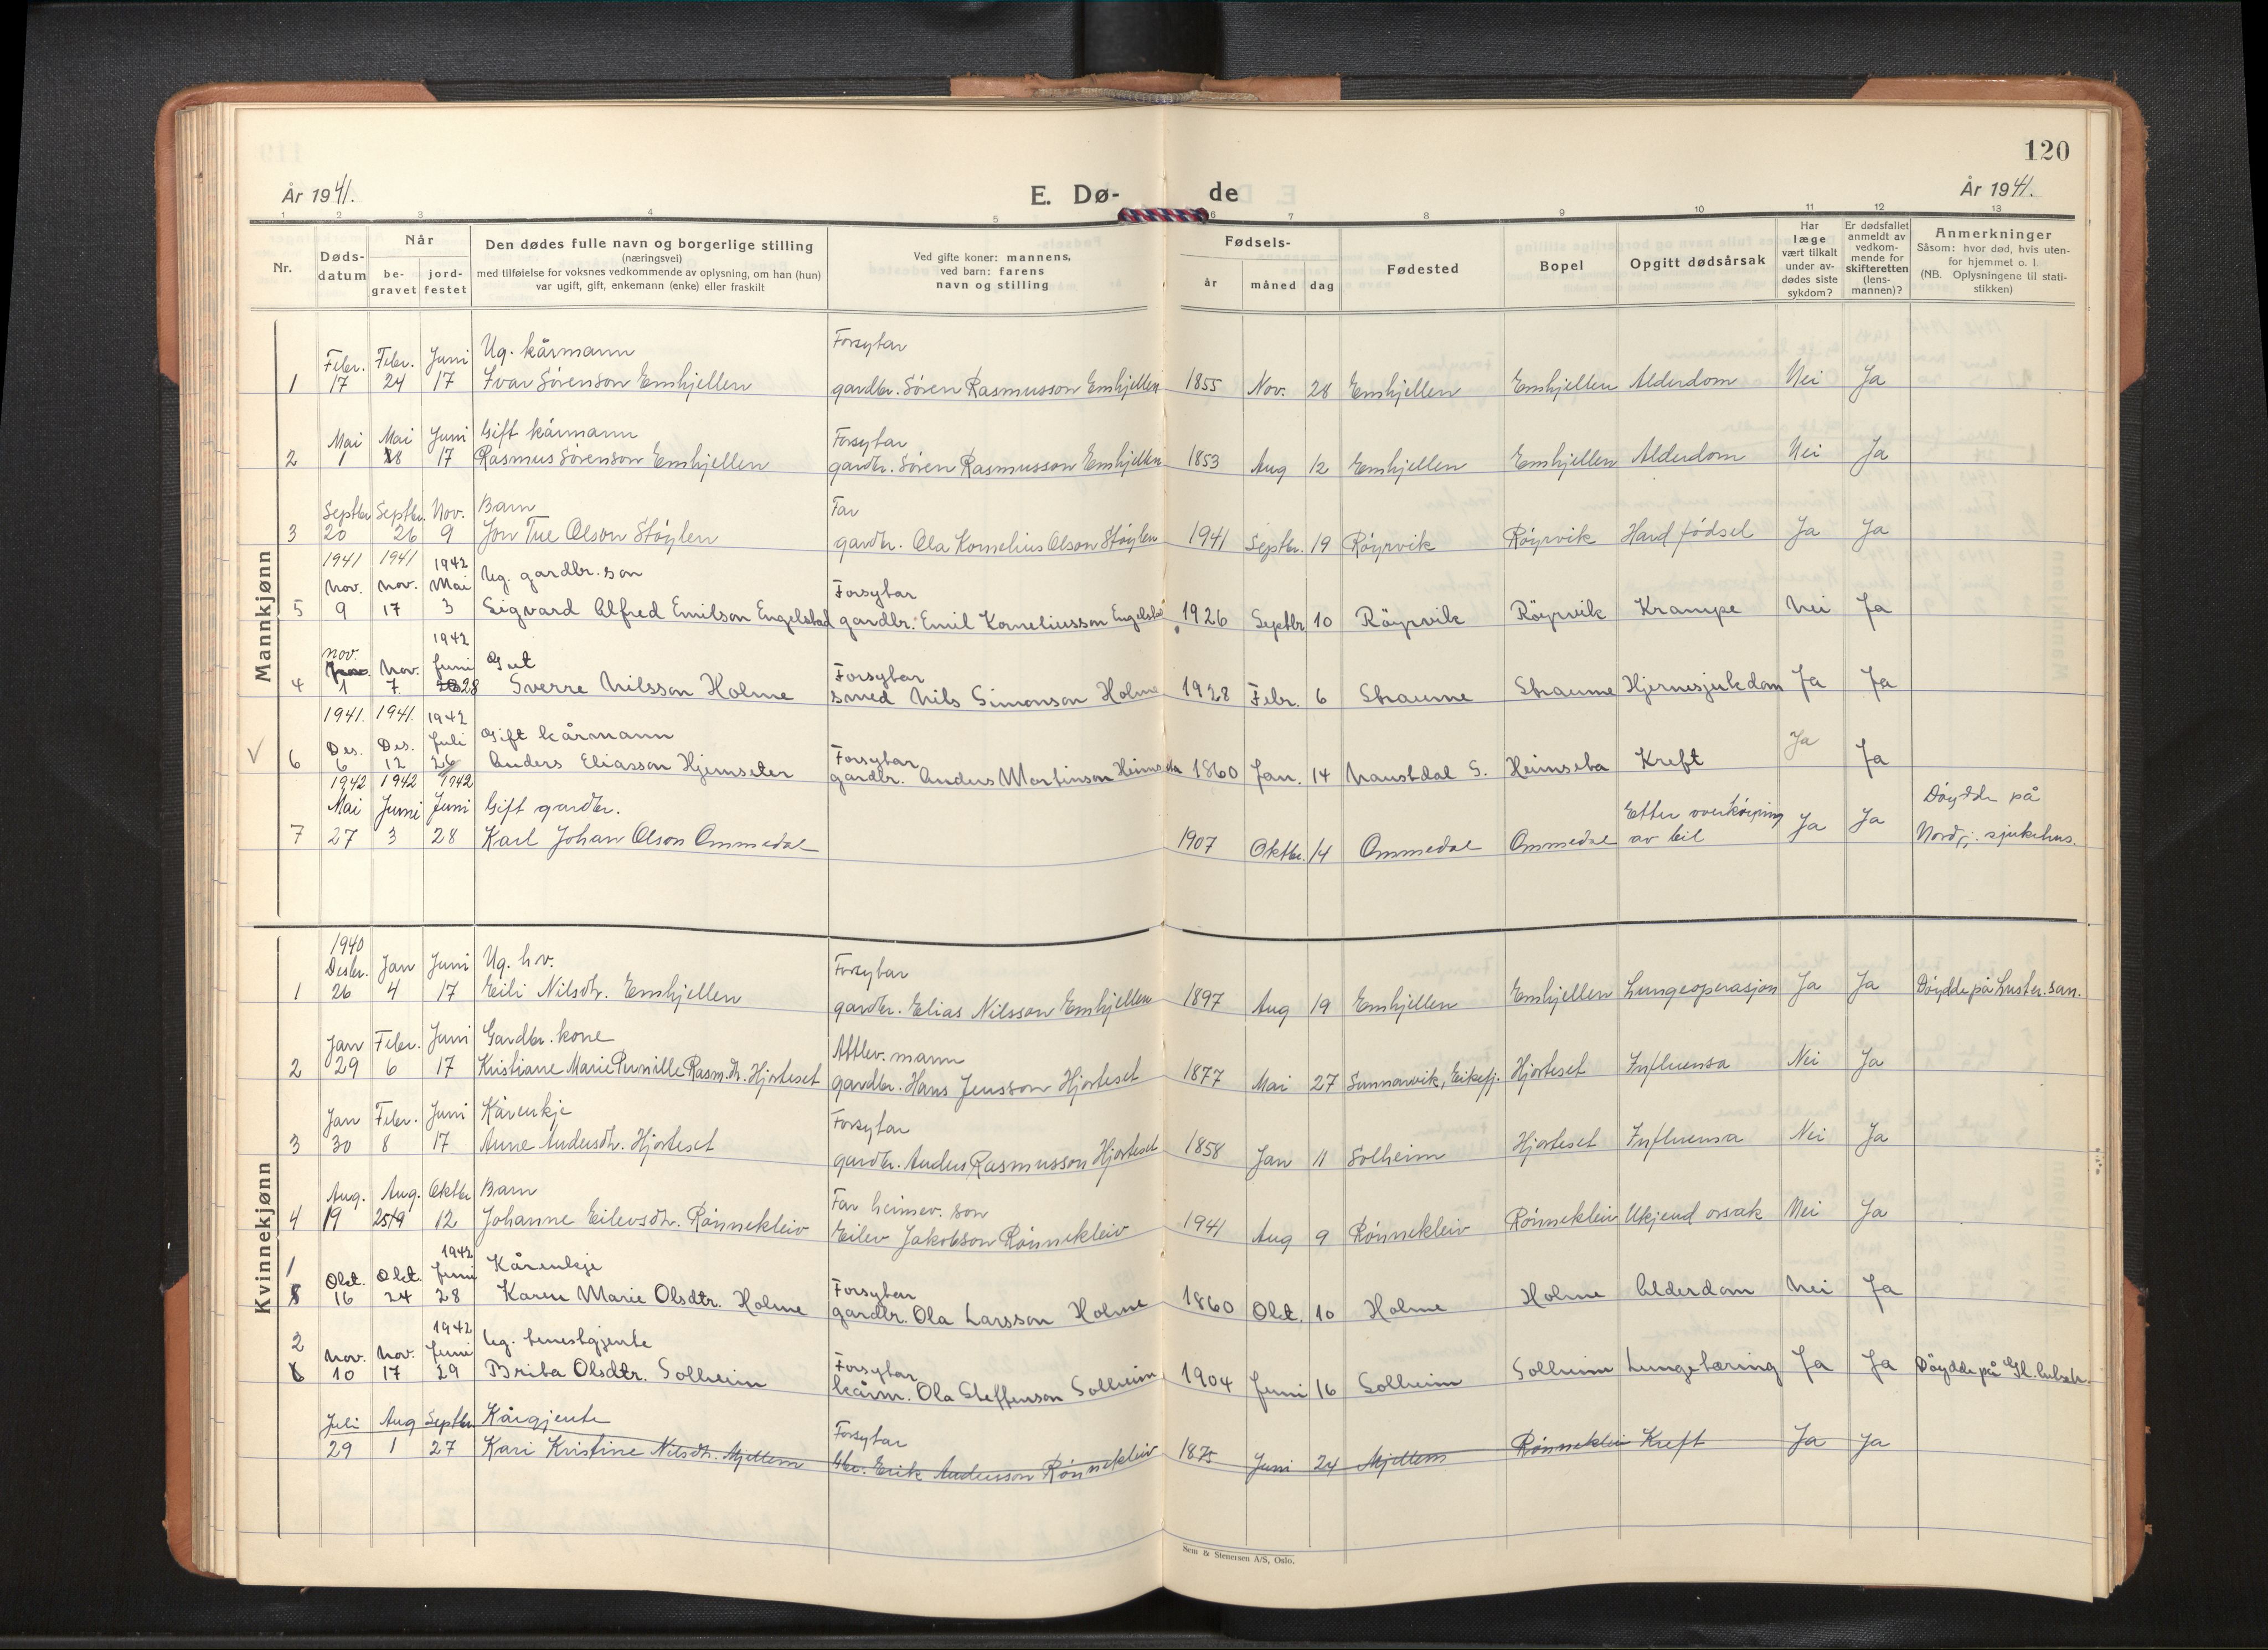 120
År 1941.
E. Dø-
de
År 1941.
1 2 3 4 5 6 7 8 9 10 11 12 13
Nr.
Døds-
datum
Når
be-
gravet
jord-
festet
Den dødes fulle navn og borgerlige stilling
(næringsvei)
med tilføielse for voksnes vedkommende av oplysning, om han (hun)
var ugift, gift, enkemann (enke) eller fraskilt
Ved gifte koner: mannens,
ved barn: farens
navn og stilling
Fødsels-
år måned dag
Fødested
Bopel
Opgitt dødsårsak
Har
læge
vært tilkalt
under av-
dødes siste
sykdom?
Er dødsfallet
anmeldt av
vedkom-
mende for
skifteretten
(lens-
mannen)?
Anmerkninger
Såsom: hvor død, hvis uten-
for hjemmet o. l.
(NB. Oplysningene til stati-
stikken)
Mannkjønn
Febr. Febr. Juni Ug. kårmann Forsytar
1 17 24 17 Ivar Sørenson Emhjellen gardbr. Søren Rasmusson Emhjellen 1855 Nov. 28 Emhjellen Emhjellen Alderdom Nei Ja
Mai Mai Juni Gift kårmann Forsytar
2 1 8 17 Rasmus Sørenson Emhjellen gardbr. Søren Rasmusson Emhjellen 1853 Aug 12 Emhjellen Emhjellen Alderdom Nei Ja
Septbr. Septbr. Nov. Barn Far
3 20 26 9 Jon Tue Olson Støylen gardbr. Ola Kornelius Olson Støylen 1941 Septbr. 19 Røyrvik Røyrvik Hard fødsel Ja Ja
1941 1941 1942
Nov. Nov. Mai Ug. gardbr. son Forsytar
5 9 17 3 Sigvard Alfred Emilson Engelstad gardbr. Emil Korneliusson Engelstad 1926 Septbr 10 Röyrvik Röyrvik Krampe Nei Ja
1942
nov.
Nov. Juni Gut Forsytar
4 1 7 28 Sverre Nilsson Holme smed Nils Simonson Holme 1928 Febr. 6 Straume Straume Hjernesjukdom Ja Ja
1941. 1941. 1942
Des. Des. Juli Gift kårmann Forsytar
6 6 12 26 Anders Eliasson Hjemseter gardbr. Anders Martinson Heimseta 1860 Jan. 14 Naustdal S. Heimseta Kreft Ja Ja
1942 1942 1942
Mai Juni Juni Gift gardbr. Etter overkøyring Døydde på
7 27 3 28 Karl Johan Olson Ommedal 1907 Oktbr. 14 Ommedal Ommedal av bil Ja Ja Nordfj. sjukehus.
Kvinnekjønn
1940
Desbr. Jan Juni Ug. hv. Forsytar
1 26 4 17 Eili Nilsdtr. Emhjellen gardbr. Elias Nilsson Emhjellen 1897 Aug 19 Emhjellen Emhjellen Lungeoperasjon Ja Ja Døydde på Luster. san.
Jan Febr. Juni Gardbr. kone Attlev. mann
2 29 6 17 Kristiane Marie Pernille Rasm.dtr. Hjorteset gardbr. Hans Jensson Hjorteset 1877 Mai 27 Sunnarvik, Eikefj. Hjorteset Influensa Nei Ja
Jan Febr. Juni Kårenkje Forsytar
3 30 8 17 Anne Andersdtr. Hjorteset gardbr. Anders Rasmusson Hjorteset 1858 Jan 11 Solheim Hjorteset Influensa Nei Ja
Aug. Aug. Oktbr Barn Far heimev. son
4 19 12 Johanne Eilevsdtr. Rønnekleiv Eilev Jakobson Rønnekleiv 1941 Aug 9 Rønnekleiv Rønnekleiv Ukjend orsak Nei Ja
1942
1 Okt. Okt. Juni Kårenkje Forsytar
5 16 24 28 Karen Marie Olsdtr. Holme gardbr. Ola Larsson Holme 1860 Okt. 10 Holme Holme Alderdom Nei Ja
1942
2 Nov. Nov. Juni Ug. tenestgjente Forsytar
6 10 17 29 Brita Olsdtr. Solheim kårm. Ola Steffenson Solheim 1904 Juni 16 Solheim Solheim Lungetæring Ja Ja Døydde på Gl.
Juli Aug Septbr Kårgjente Forsytar
29 1 27 Kari Kristine Nilsdtr. Mjellem Gbr. Erik Andersson Rønnekleiv 1875 Juni 24 Mjellem Rønnekleiv Kreft Ja Ja
Sem & Stenersen A/S, Oslo.